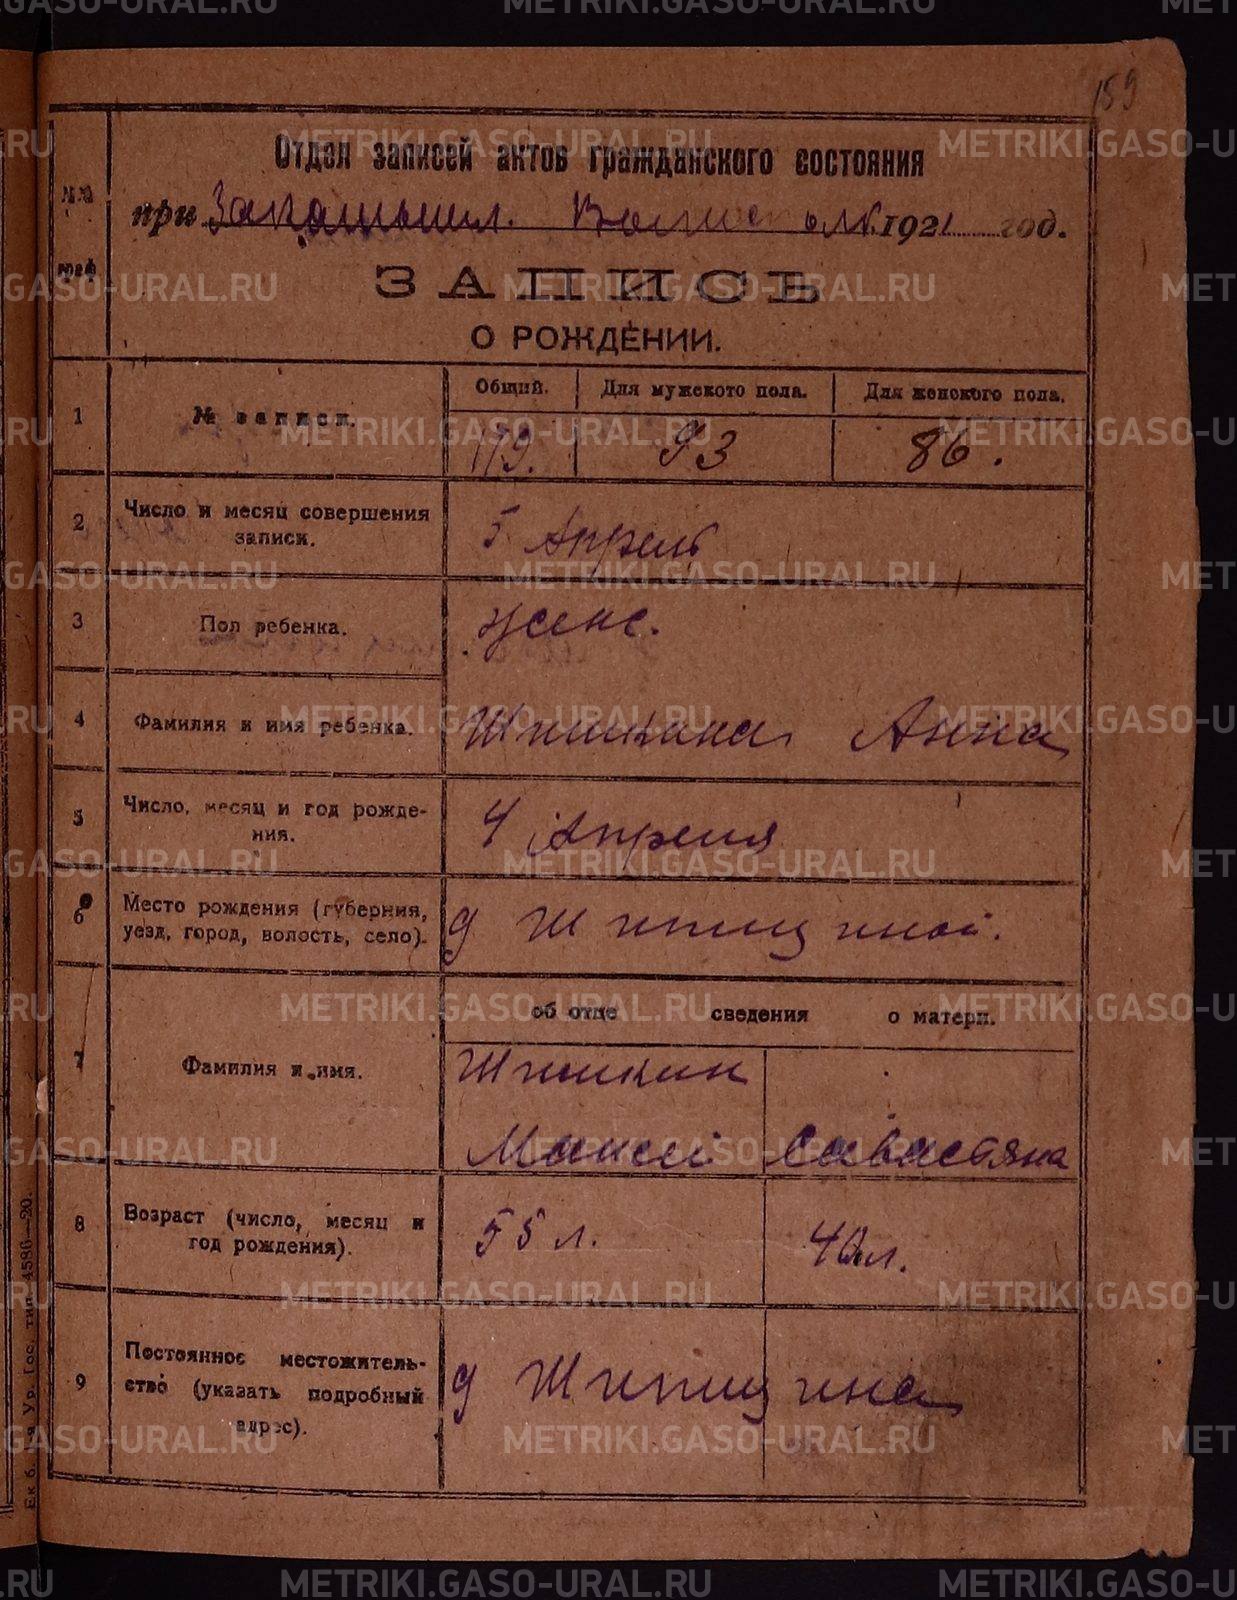 159
Отдел записей актов гражданского состояния
при Закамышл. Волисполк. 1921 год.
№№ граф
ЗАПИСЬ
О РОЖДЕНИИ.
1
№ записи.
Общий.
Для мужского пола.
Для женского пола.
179.
93
86.
2
Число и месяц совершения
записи.
5 Апрель
3
Пол ребенка.
женс.
4
Фамилия и имя ребенка.
Шишкина Анна
5
Число, месяц и год рожде-
ния.
4 Апреля
6
Место рождения (губерния,
уезд, город, волость, село).
д Шипициной.
об отце сведения о матери.
7
Фамилия и имя.
Шишкин
Моисей
Савастьяна
8
Возраст (число, месяц и
год рождения).
55 л.
42 л.
9
Постоянное местожитель-
ство (указать подробный
адрес).
д Шипицина
Ек б. 1-я Ур. Гос. тип. 4586—20.
METRIKI.GASO-URAL.RU